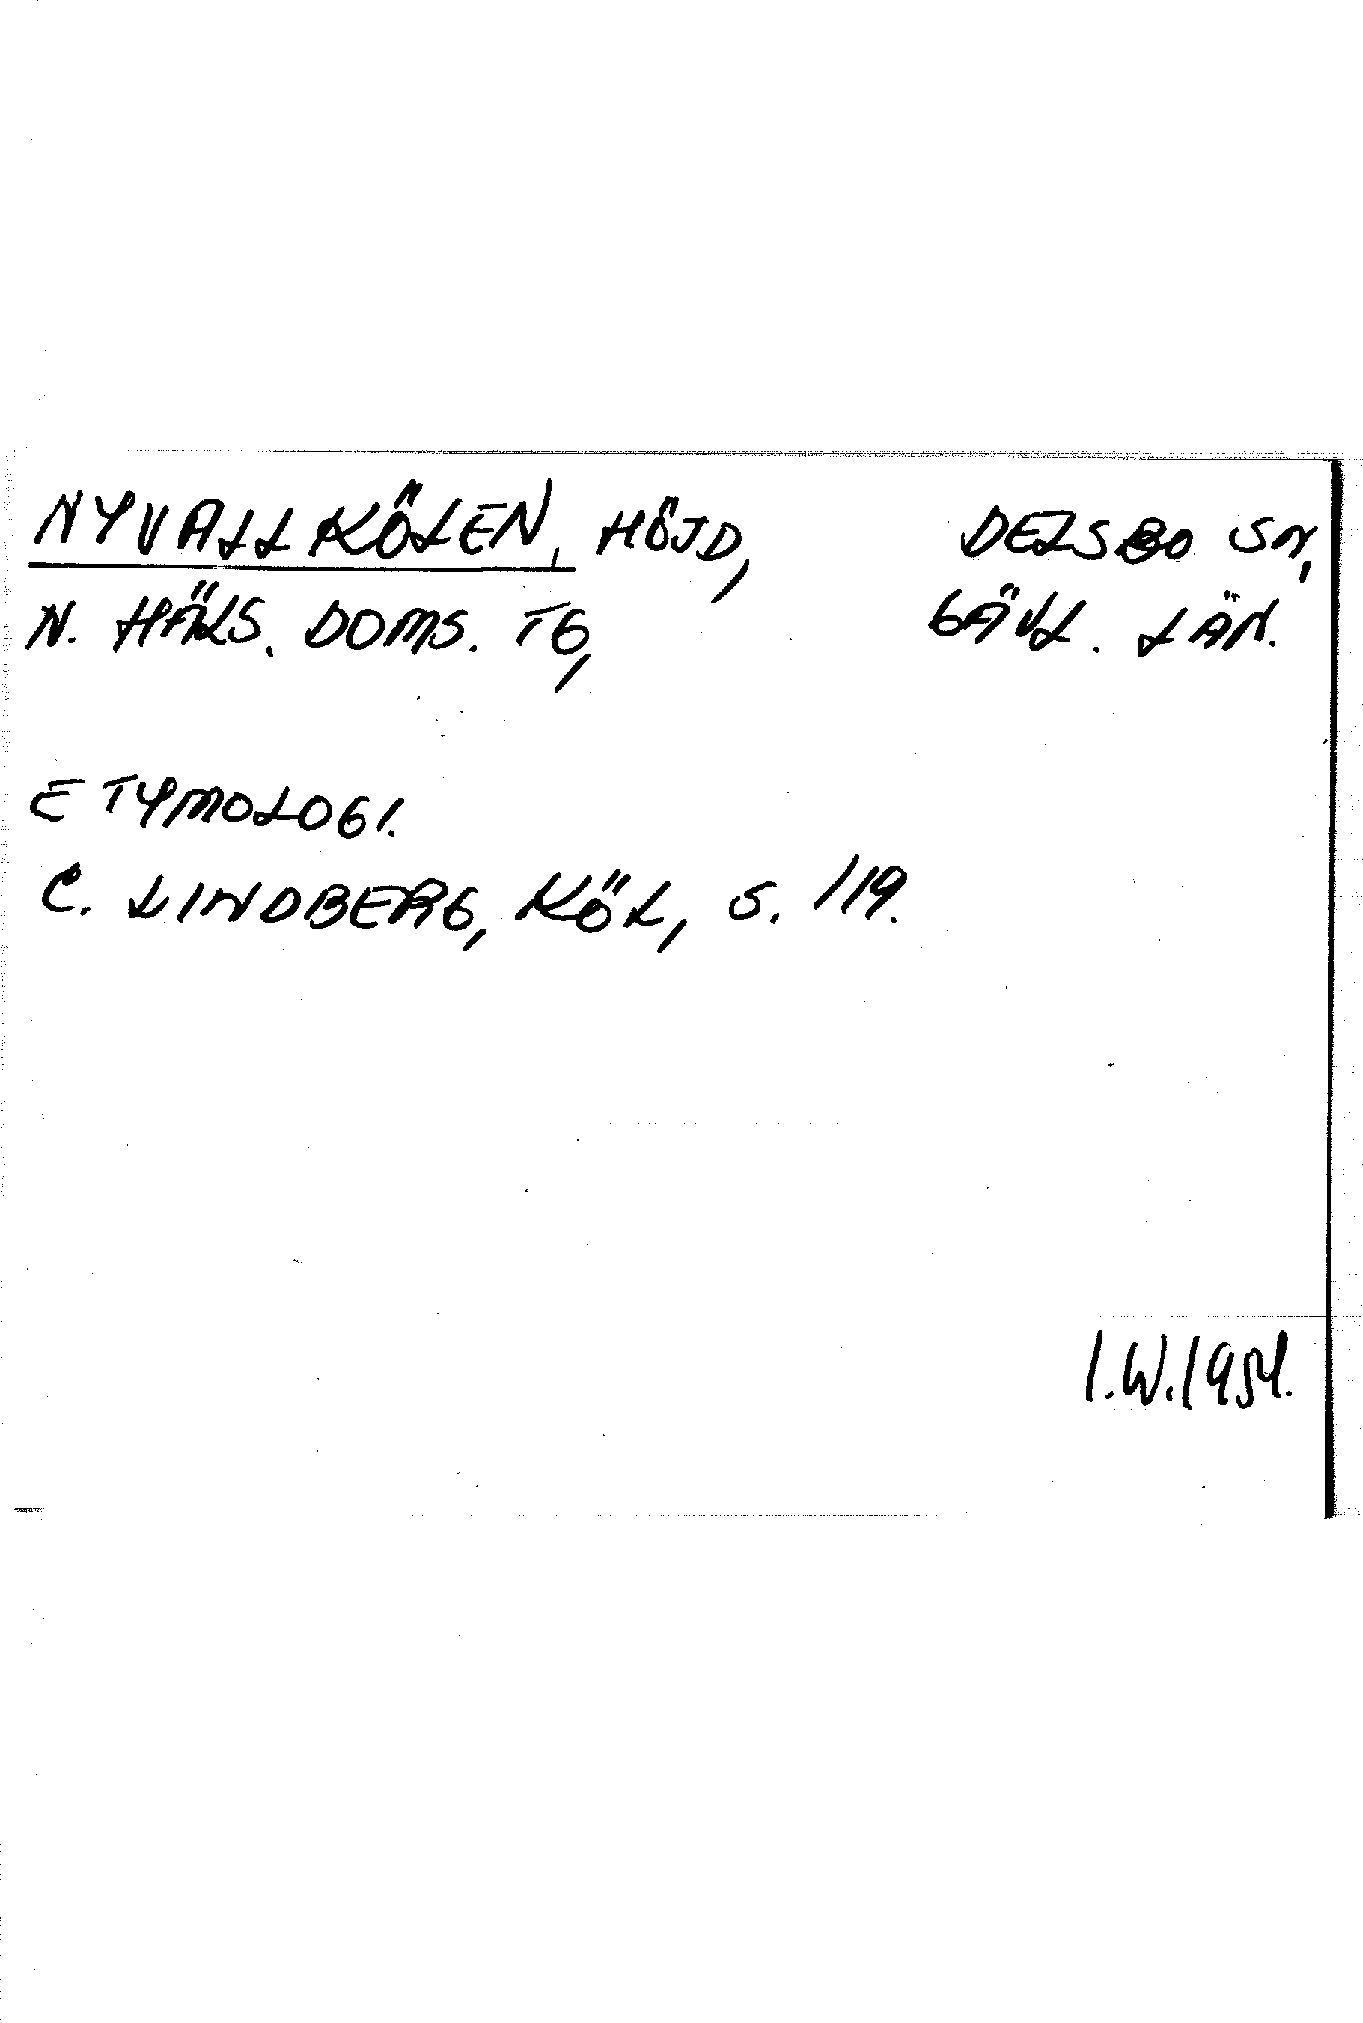 NYVALLKÖLEN, HÖJD, DELSBO SN,
N. HÄLS. DOMS. TG, GÄVL. LÄN.
ETYMOLOGI.
C. LINDBERG, KÖL, S. 119.
I.W.1954.